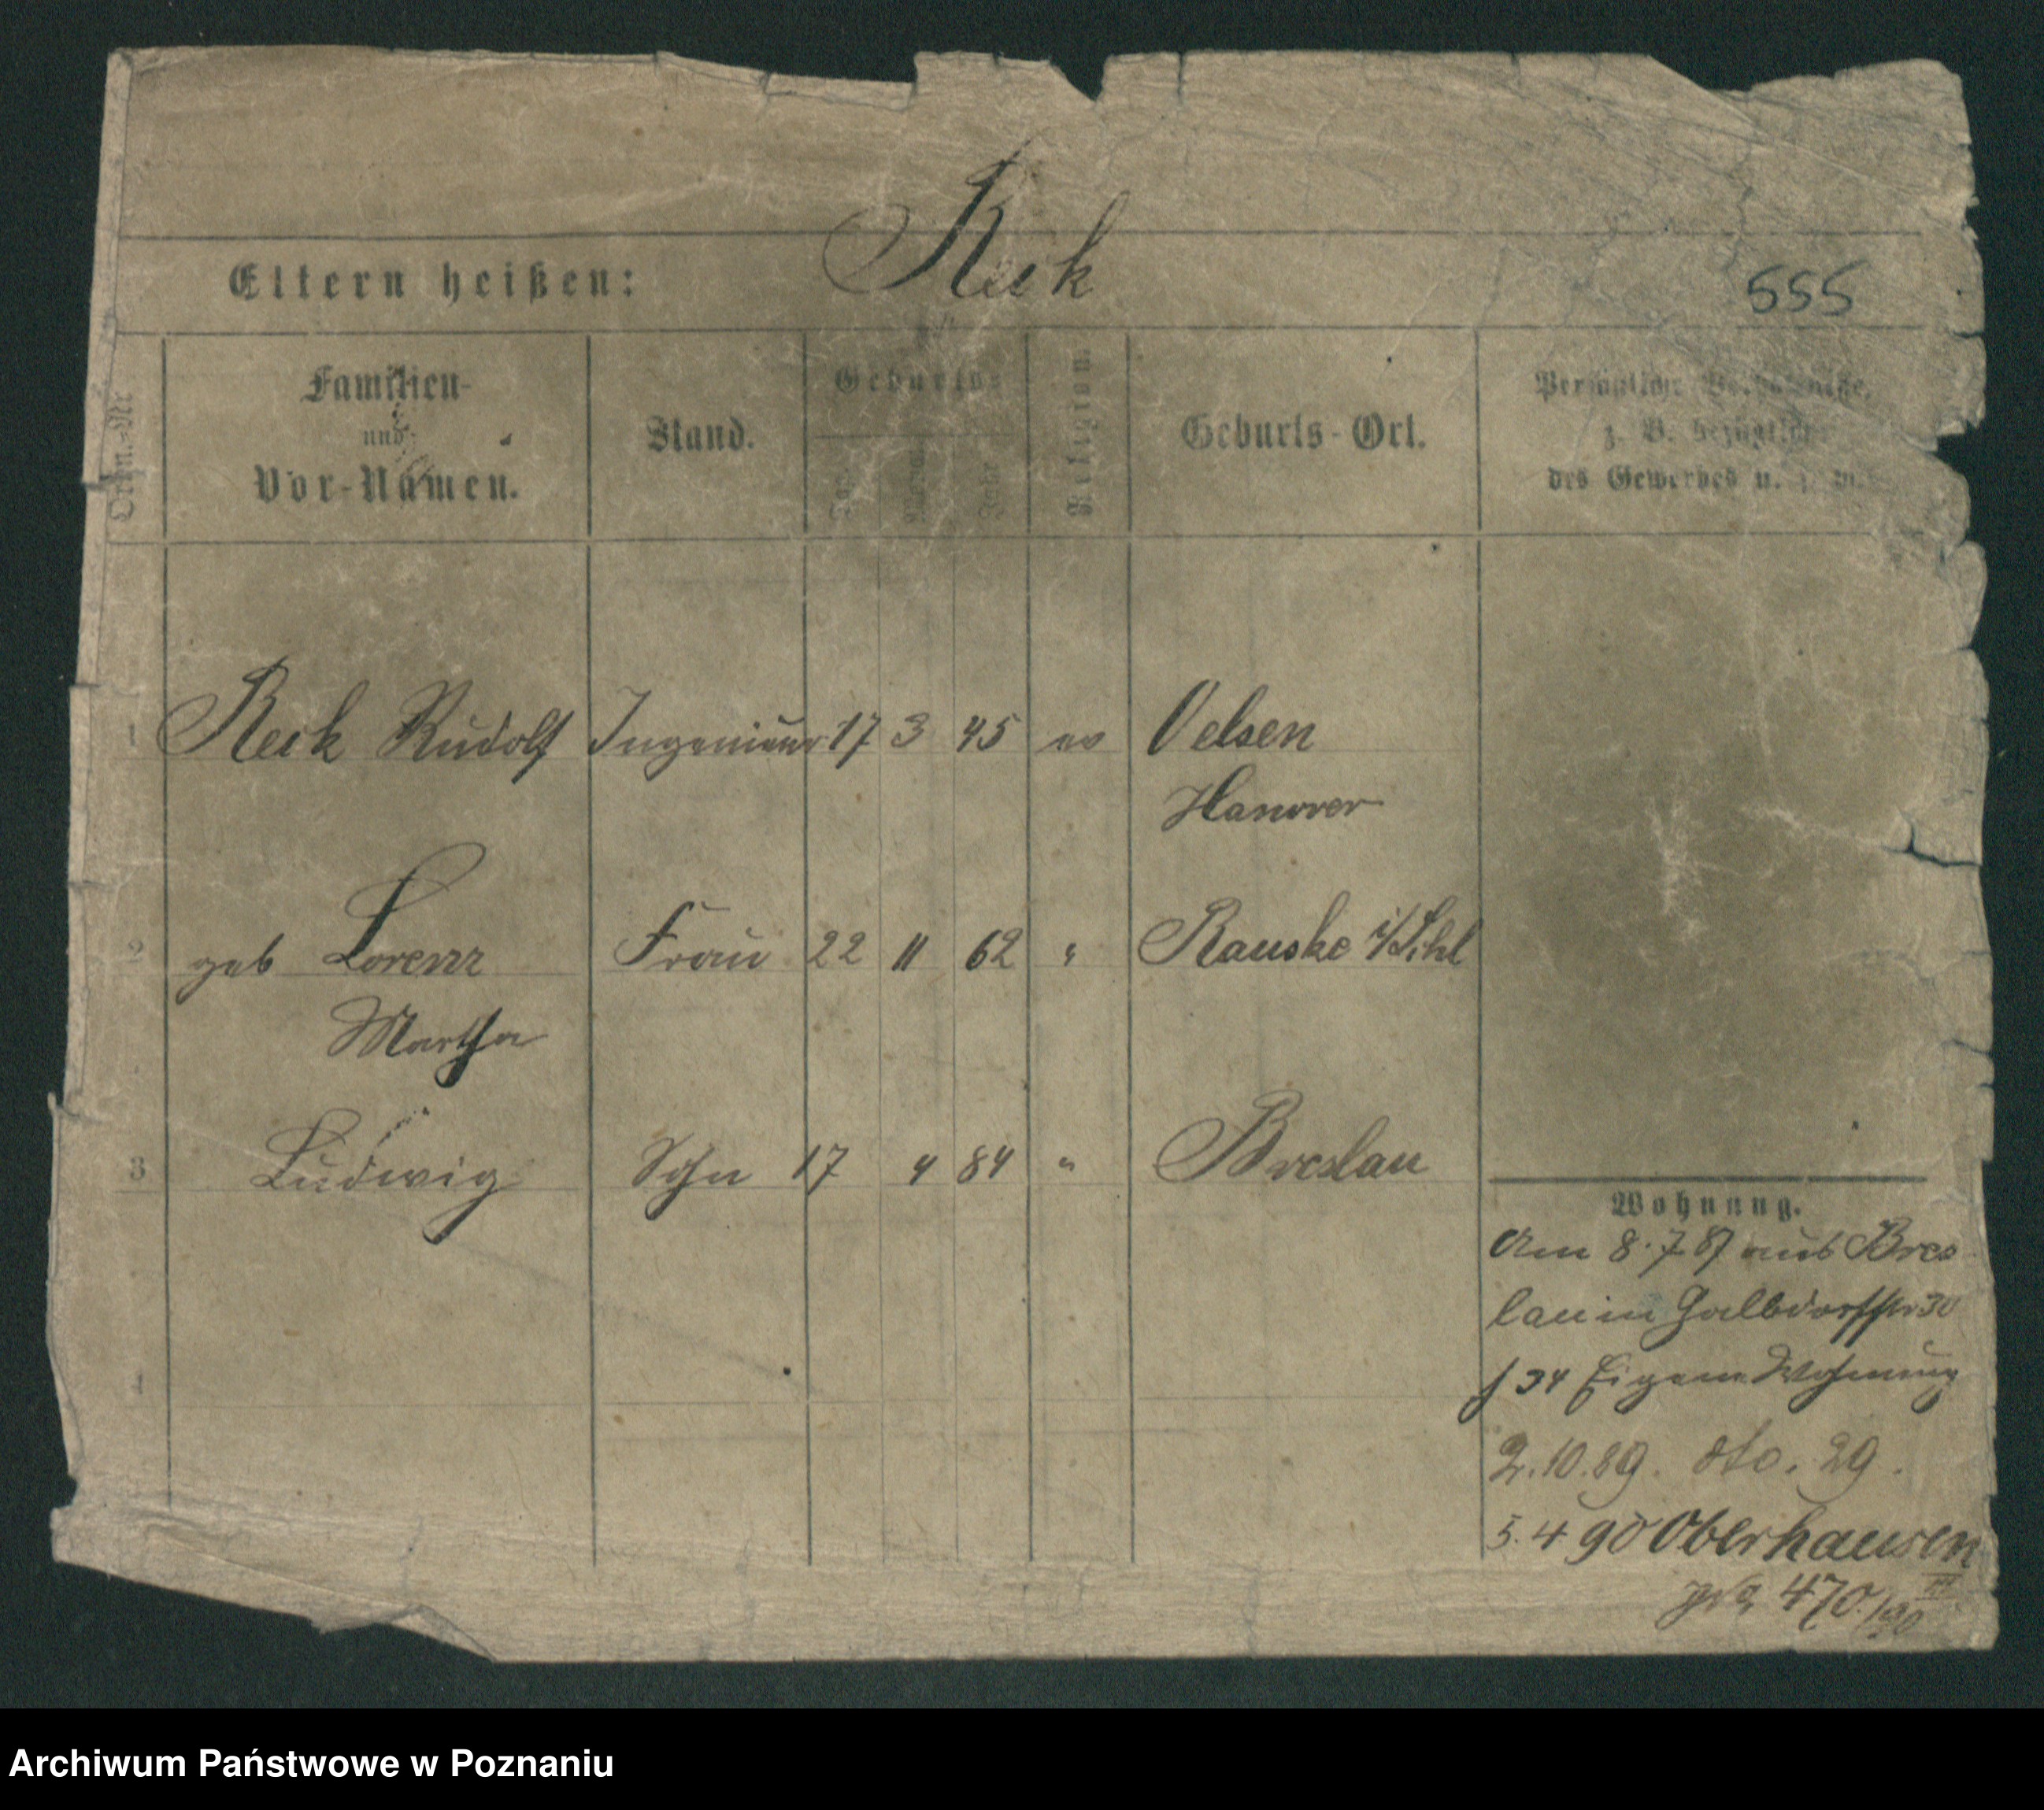 Reck
Eltern heißen:
555
Ordn.-Nr
Familien-
und
Vor-Namen.
Stand.
Geburts-
Tag
Monat
Jahr
Religion.
Geburts-Ort.
Persönliche Verhältnisse,
z. B. bezüglich
des Gewerbes u. s. w.
1 Reck Rudolf Ingenieur 17 3 45 ev Oelsen
Hanover
2 geb Lorenz Frau 22 11 62 " Rauske i/Schl
Martha
3 Ludwig Sohn 17 4 84 " Breslau
4
Wohnung.
Am 8.7 87 aus Bres
lau in Halbdorfstr 30
34 Eigene Wohnung
2.10.89. dto. 29.
5.4 90 Oberhausen
470./90 III
Archiwum Państwowe w Poznaniu